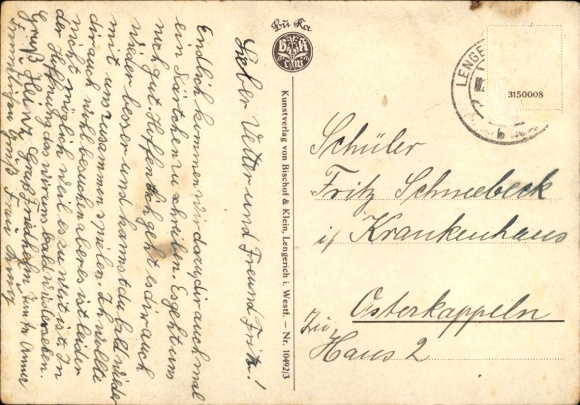 Lieber Vetter und Freund Fritz!
Endlich kommen wir dazu, dir auch mal
ein Kärtchen zu schreiben. Es geht uns
noch gut. Hoffentlich geht es dir auch
wieder besser und kannst du bald wieder
mit uns zusammen spielen. Ich wollte
dir auch wohl besuchen aber es ist leider
nicht möglich weil es zu weit ist. In
der Hoffnung das wir uns bald wiedersehen.
Gruß Heinz Gruß Friedhelm Tante Anna
Gruß Frau
Bü Ka
B & K
Kunstverlag von Bischof & Klein, Lengerich i. Westf. — Nr. 10492/3
LENGE
3150008
Schüler
Fritz Schneebeck
if Krankenhaus
Osterkappeln
Haus 2